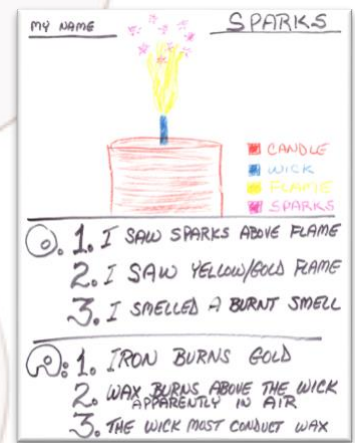 MY NAME
SPARKS
CANDLE
WICK
FLAME
SPARKS
O. 1. I SAW SPARKS ABOVE FLAME
2. I SAW YELLOW/GOLD FLAME
3. I SMELLED A BURNT SMELL
1. IRON BURNS GOLD
2. WAX BURNS ABOVE THE WICK
APPARENTLY IN AIR
3. THE WICK MOST CONDUCT WAX